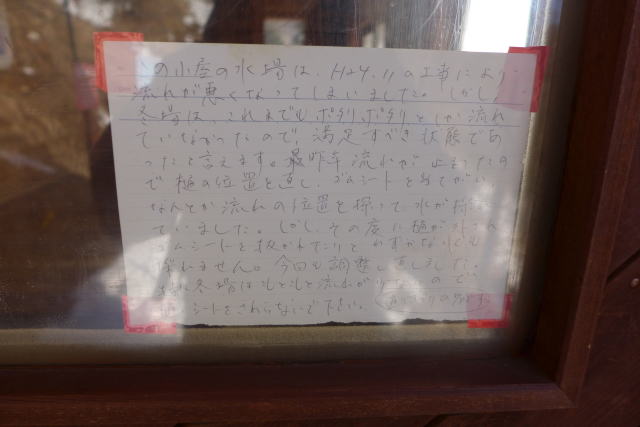 この小屋の水場は、H24.11の工事により
流れが悪くなってしまいました。しかし、
冬場は、これまでもポタリポタリとしか流れ
ていなかったので、満足すべき状態であ
ったと言えます。昨年流れが
で樋の位置を直し、ゴムシートをあてがい、
なんとか流れの位置を探って水が
ていました。しかし、その度に樋が
ゴムシートを抜かれたりとわずかな水も
採れません。今回も調整し直しました。
冬場はもともと流れが ので
シートをさわらないで下さい。